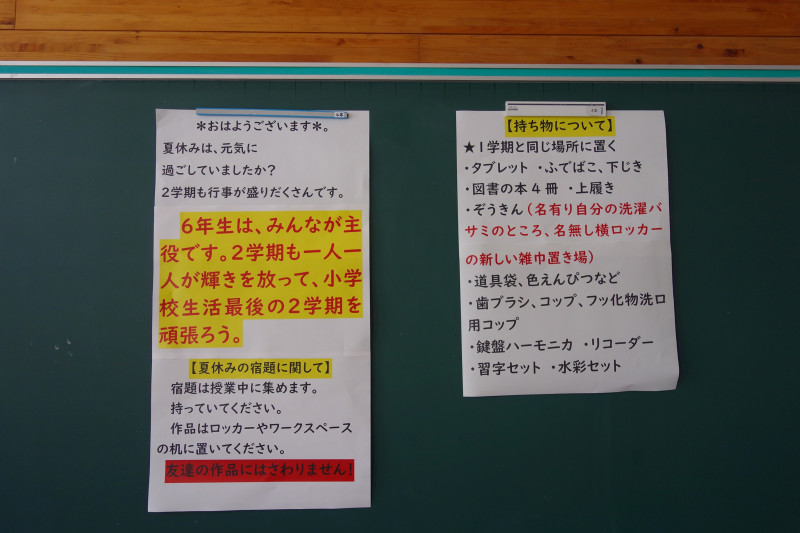 ＊おはようございます＊。
夏休みは、元気に
過ごしていましたか？
２学期も行事が盛りだくさんです。
６年生は、みんなが主
役です。２学期も一人一
人が輝きを放って、小学
校生活最後の２学期を
頑張ろう。
【夏休みの宿題に関して】
宿題は授業中に集めます。
持っていてください。
作品はロッカーやワークスペース
の机に置いてください。
友達の作品にはさわりません！
【持ち物について】
★１学期と同じ場所に置く
・タブレット ・ふでばこ、下じき
・図書の本４冊 ・上履き
・ぞうきん（名有り自分の洗濯バ
サミのところ、名無し横ロッカー
の新しい雑巾置き場）
・道具袋、色えんぴつなど
・歯ブラシ、コップ、フッ化物洗口
用コップ
・鍵盤ハーモニカ ・リコーダー
・習字セット ・水彩セット